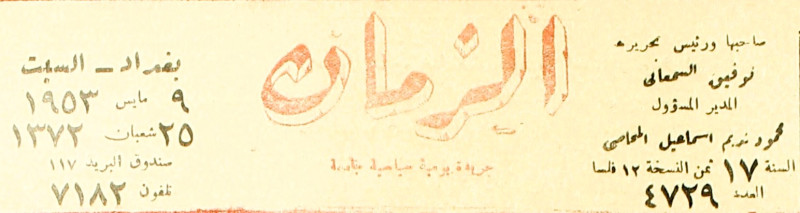 صاحبها ورئيس تحريره
توفيق السمعاني
المدير المسؤول
محمود نديم اسماعيل المحامي
السنة ١٧ ثمن النسخة ١٢ فلسا
العدد ٤٧٢٩
الزمان
جريدة يومية سياسية جامعة
بغداد ــ السبت
٩ مايس ١٩٥٣
٢٥ شعبان ١٣٧٢
صندوق البريد ١١٧
تلفون ٧١٨٢